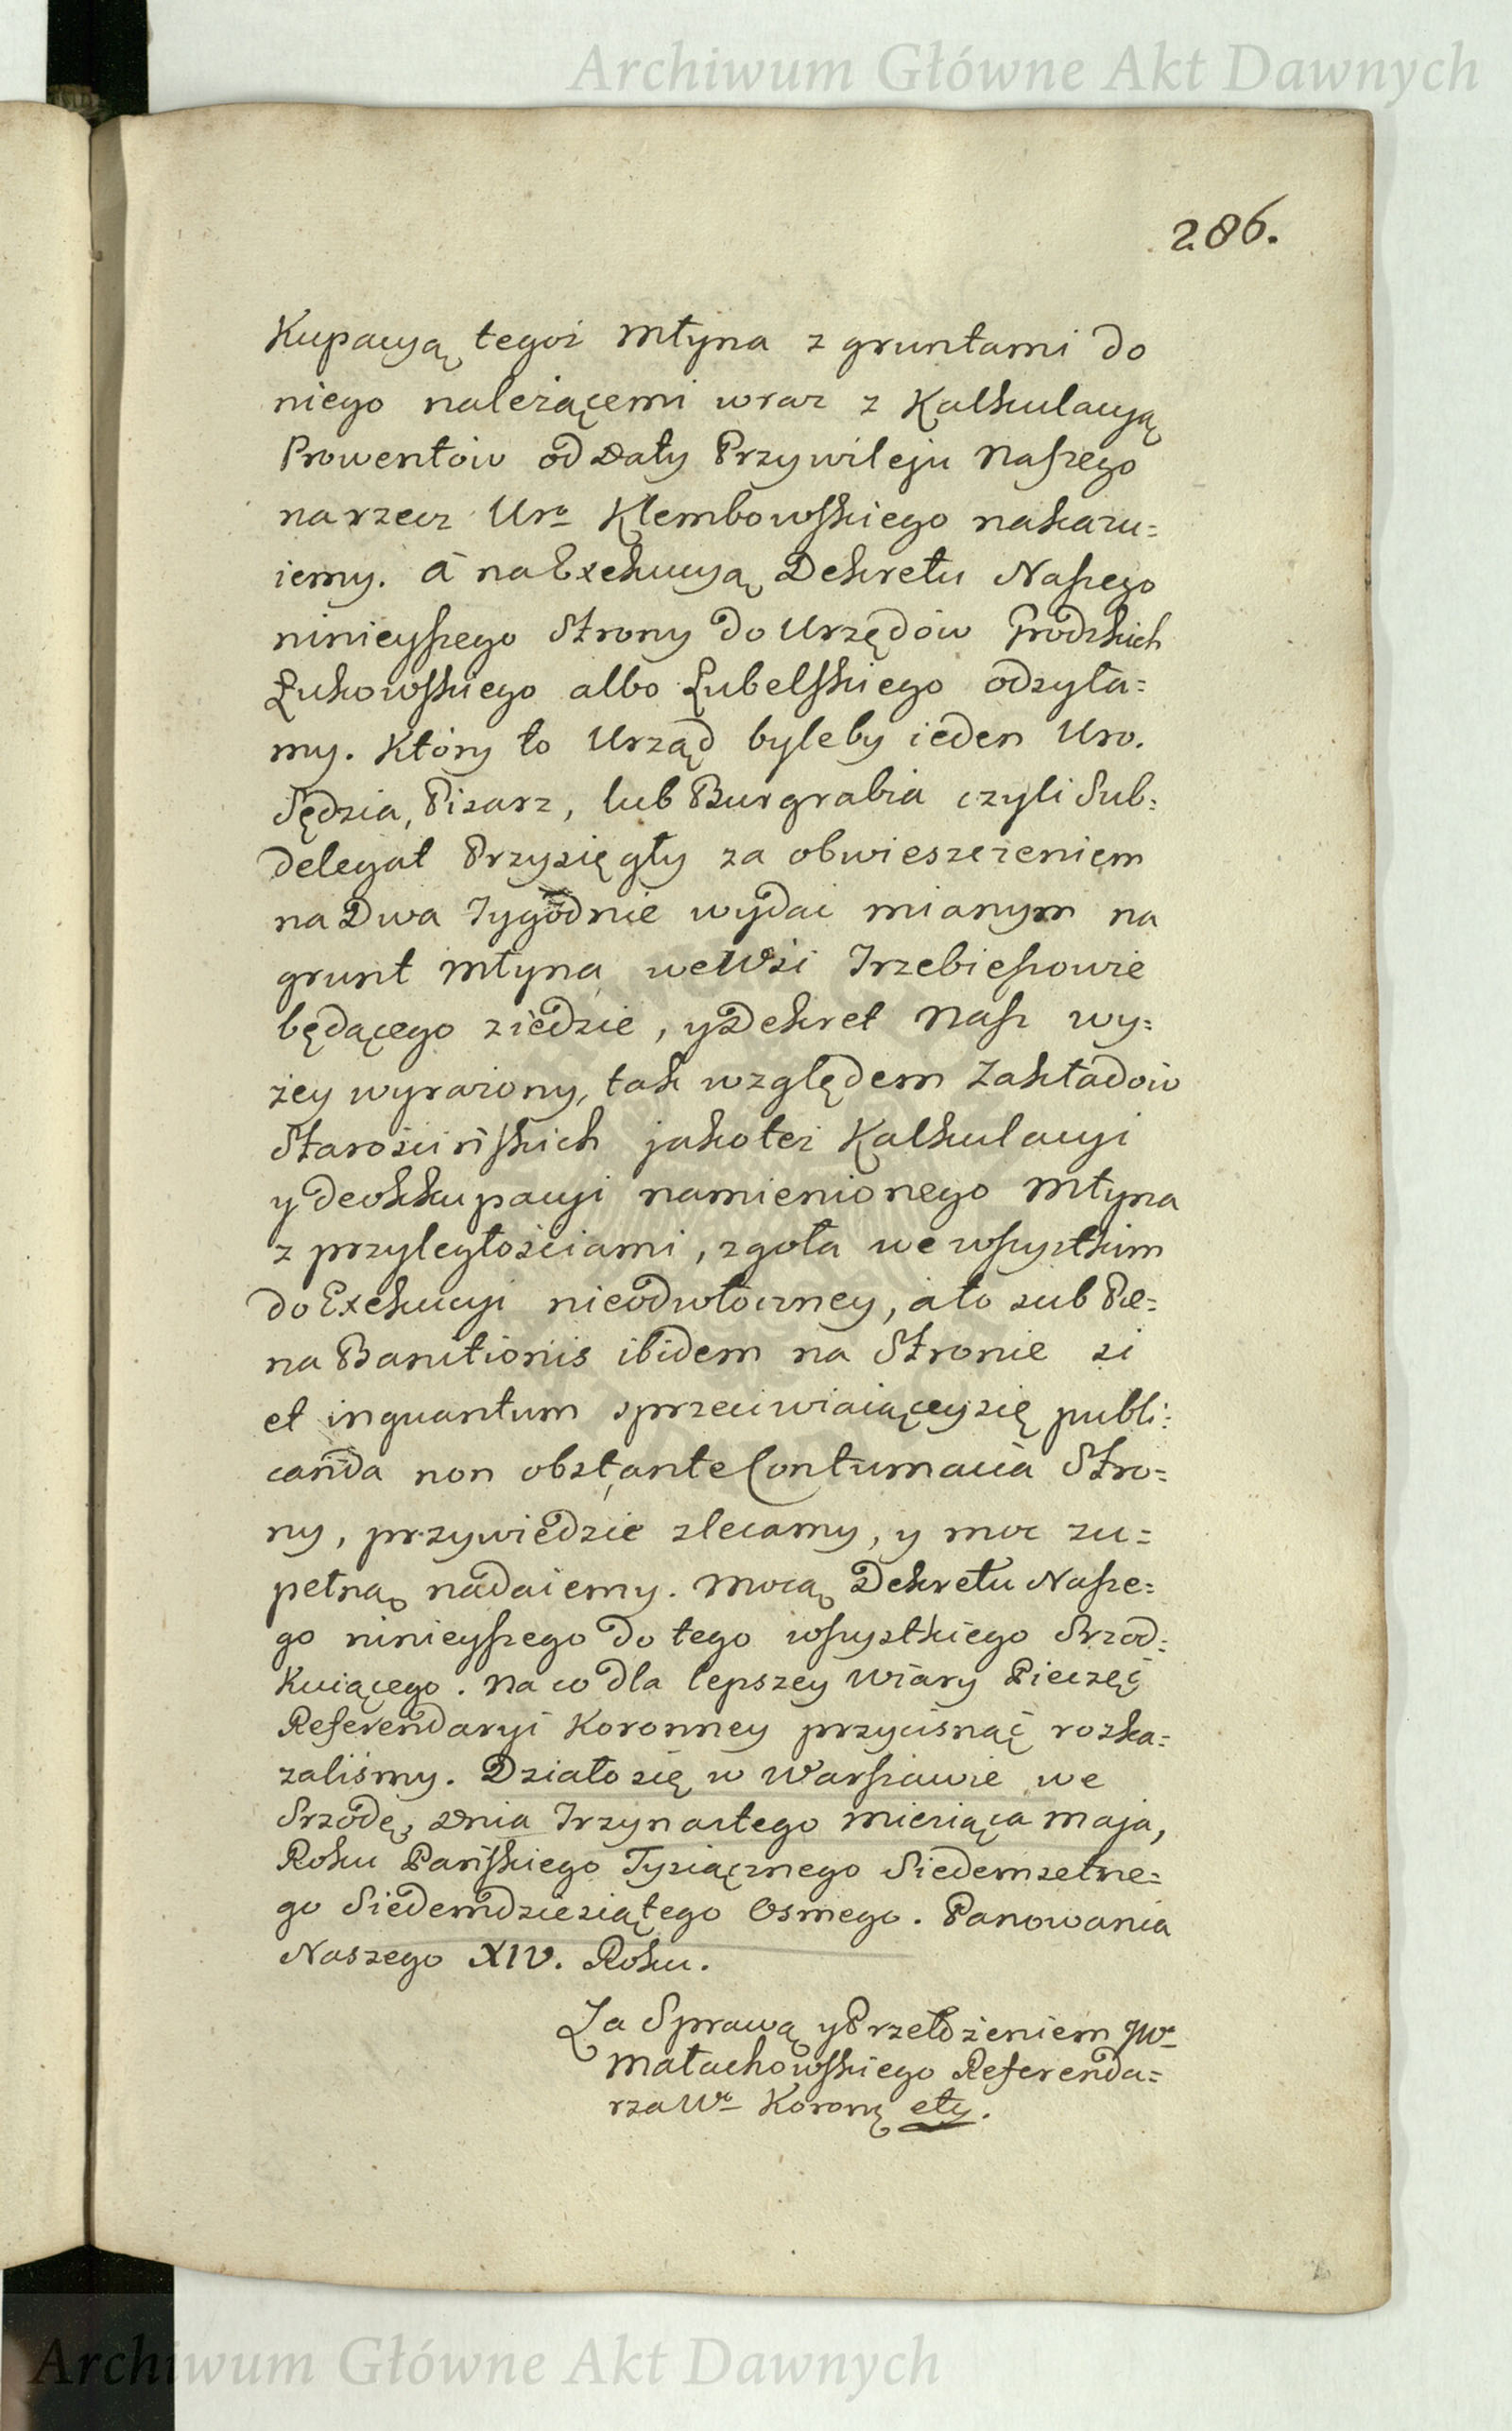 Archiwum Główne Akt Dawnych
286.
Kupacyą tegoż Młyna z gruntami do
niego należącemi wraz z Kalkulacyą
Prowentów od Daty Przywileju Naszego
na rzecz Uro Klembowskiego nakazu=
iemy. à na Exekucyą Dekretu Naszego
ninieyszego Strony do Urzędów Grodzkich
Łukowskiego albo Lubelskiego odsyła=
my. Który to Urząd byleby ieden Uro.
Sędzia, Pisarz, lub Burgrabia czyli Sub=
delegat Przysięgły za obwieszczeniem
na Dwa Tygodnie wydać mianym na
grunt Młyna we Wsi Trzebieszowie
będącego ziedzie, y Dekret Nasz wy=
żey wyrażony, tak względem Zakładów
Starościńskich jakoteż Kalkulacyi
y deokkupacyi namienionego Młyna
z przyległościami, zgoła we wszystkim
do Exekucyi nieodwłoczney, ato sub Pœ=
na Banitionis ibidem na Stronie si
et inquantum sprzeciwiaiącey się publi=
canda non obstante Contumacia Stro=
ny, przywiedzie zlecamy, y moc zu=
pełną nadaiemy. Mocą Dekretu Nasze=
go ninieyszego do tego wszystkiego Srzod=
kuiącego. Na co dla lepszey Wiary Pieczęć
Referendaryi Koronney przycisnąć rozka=
zaliśmy. Działo się w Warszawie we
Srzodę, Dnia Trzynastego Miesiąca Maja,
Roku Pańskiego Tysiącznego Siedemsetne=
go Siedemdziesiątego Osmego. Panowania
Naszego XIV. Roku.
Za Sprawą y Przełożeniem JWo
Małachowskiego Referenda=
rza Wo Koronę etz.
Archiwum Główne Akt Dawnych